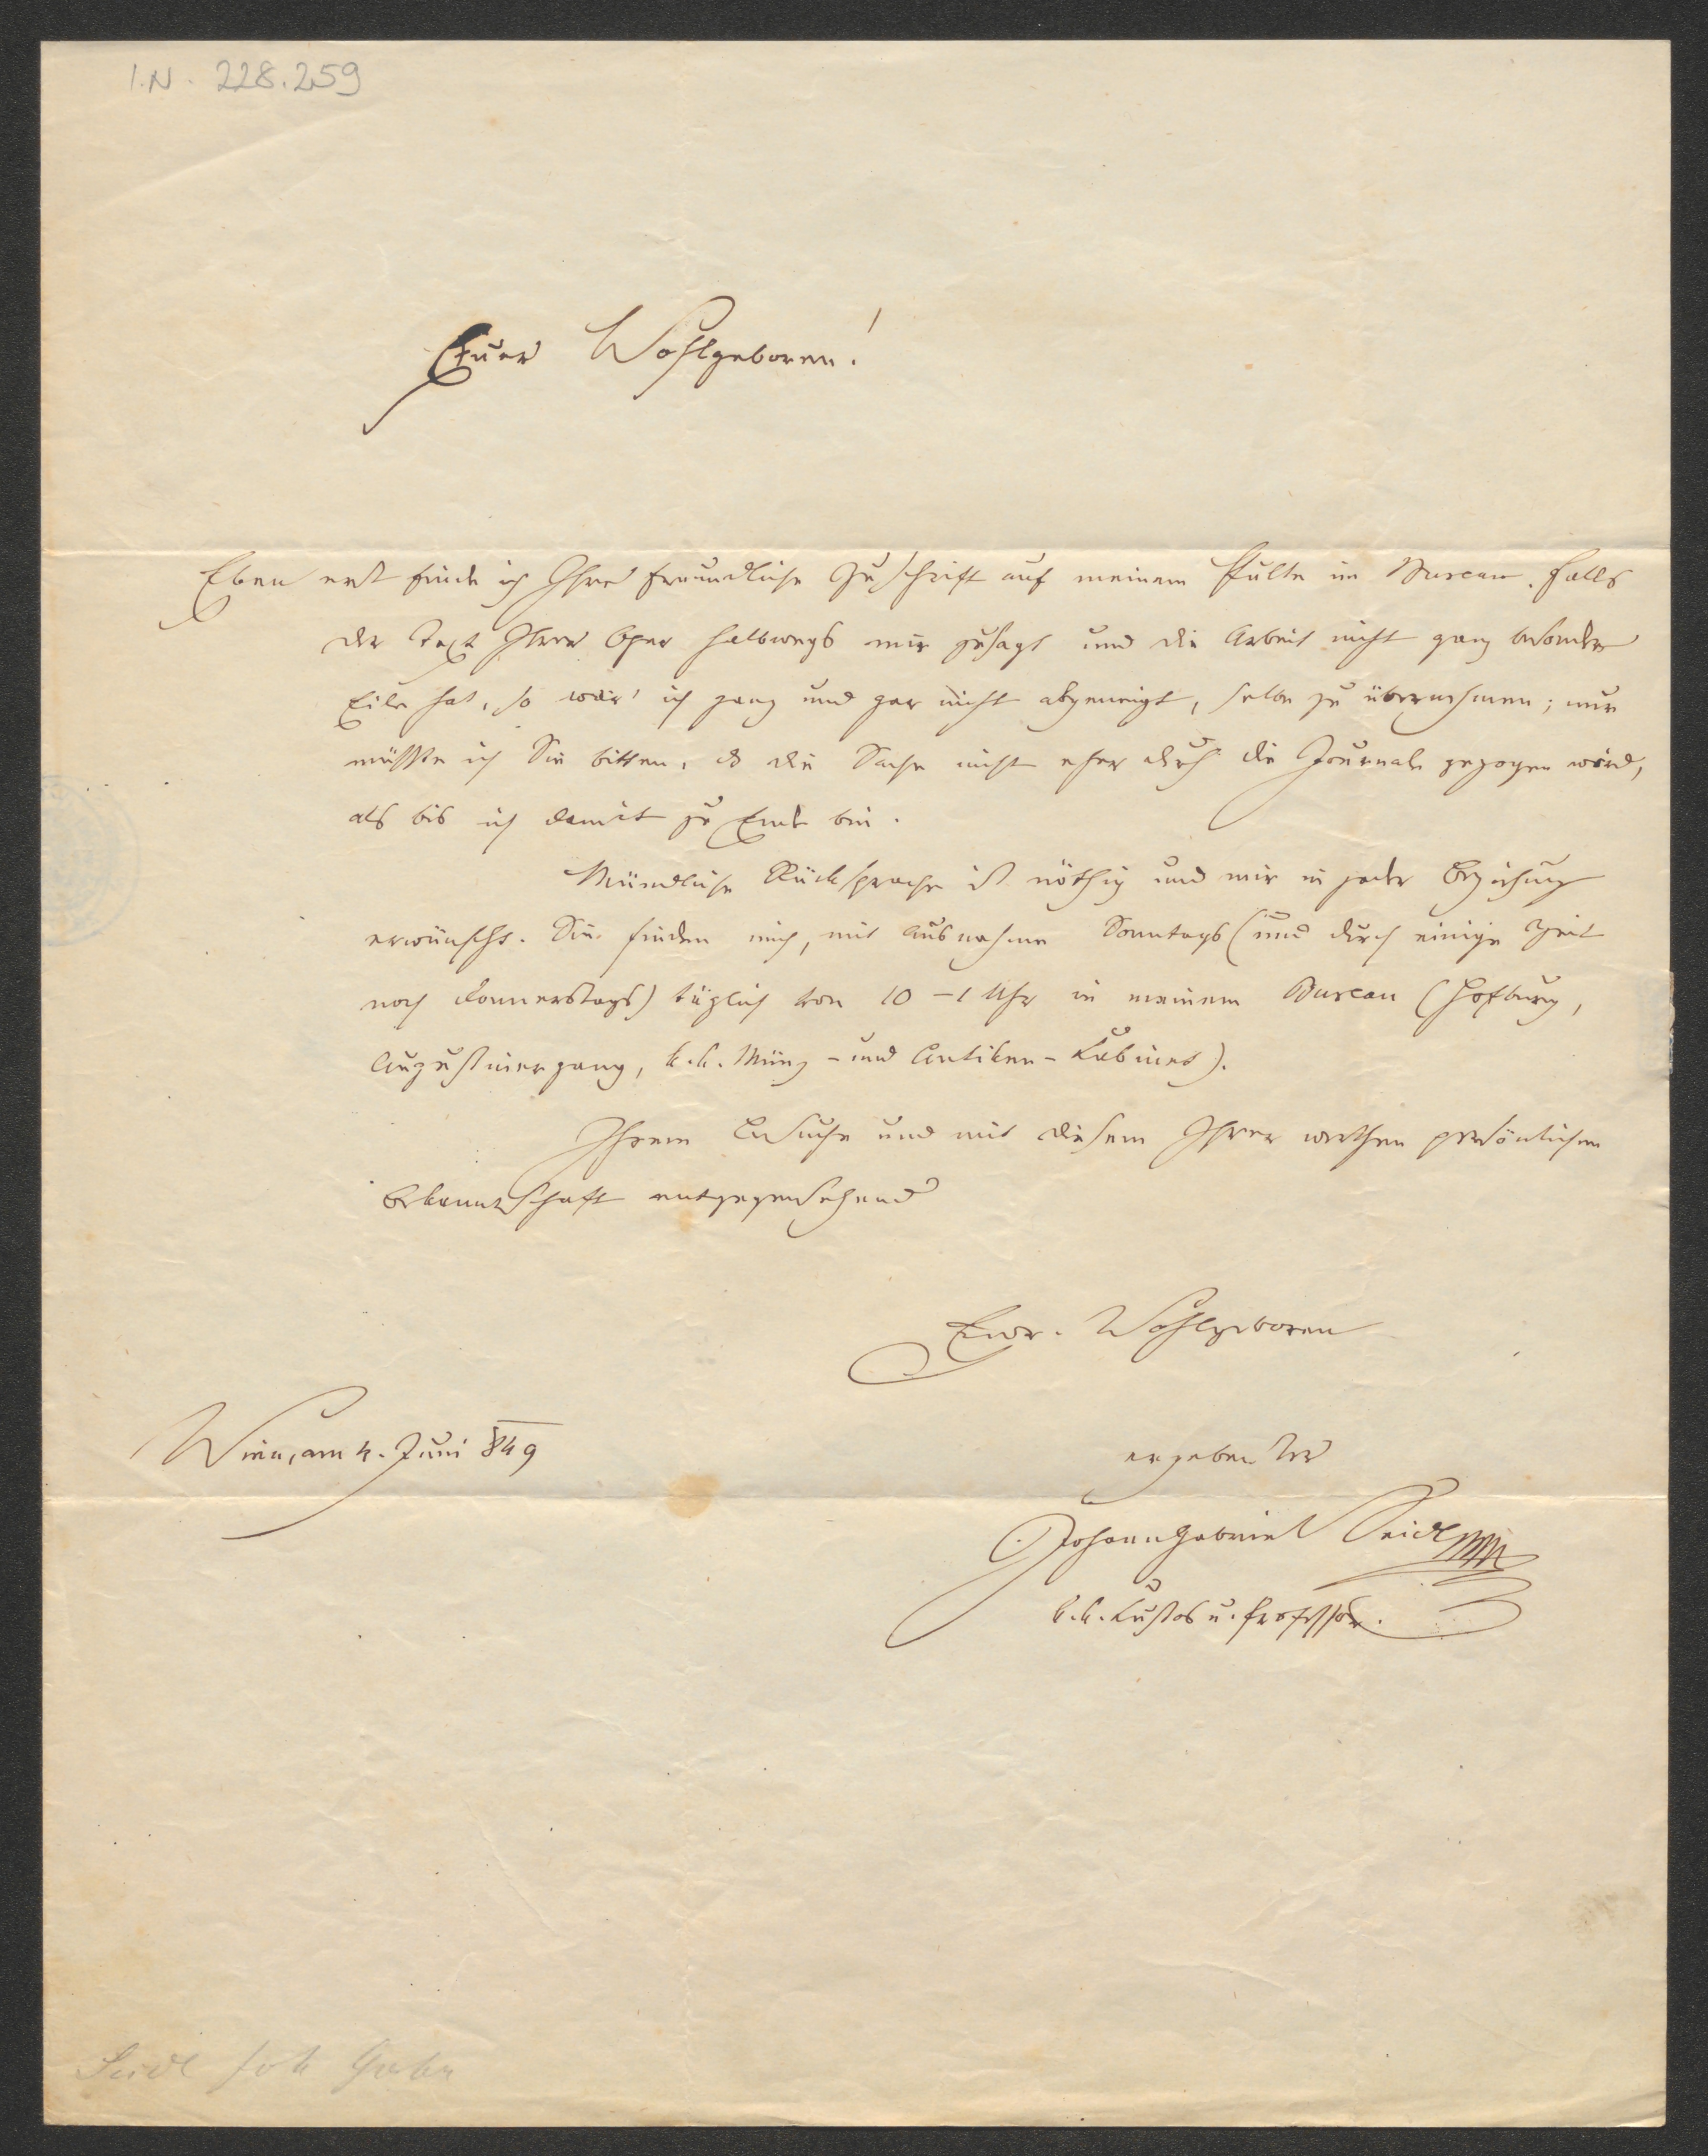 I.N. 228.259
Euer Wohlgeboren!
Eben erst finde ich Ihre freundliche Zuschrift auf meinem Pulte im Bureau. Falls
der Text Ihrer Oper halbwegs mir zusagt und die Arbeit nicht ganz besondere
Eile hat, so wär' ich ganz und gar nicht abgeneigt, selbe zu übernehmen; nur
müßte ich Sie bitten, daß die Sache nicht eher durch die Journale gezogen wird,
als bis ich damit zu Ende bin.
Mündliche Rücksprache ist nöthig und mir in jeder Beziehung
erwünscht. Sie finden mich, mit Ausnahme Sonntags (und durch einige Zeit
noch Donnerstags) täglich von 10 – 1 Uhr in meinem Bureau (Hofburg,
Augustinergang, k.k. Münz- und Antiken-Kabinet).
Ihrem Besuche und mit diesem Ihrer werthen persönlichen
Bekanntschaft entgegensehend
Euer. Wohlgeboren
Wien, am 4. Juni 849
ergebenster
Johann Gabriel Seidl
k.k. Kustos u. Professor.
Seidl Joh Gabr